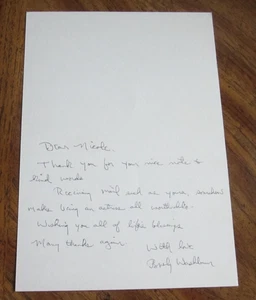 Dear Nicole,
Thank you for your nice note &
kind words
Receiving mail such as yours
make being an actress all worthwhile.
Wishing you all of life's blessings
Many thanks again
With love